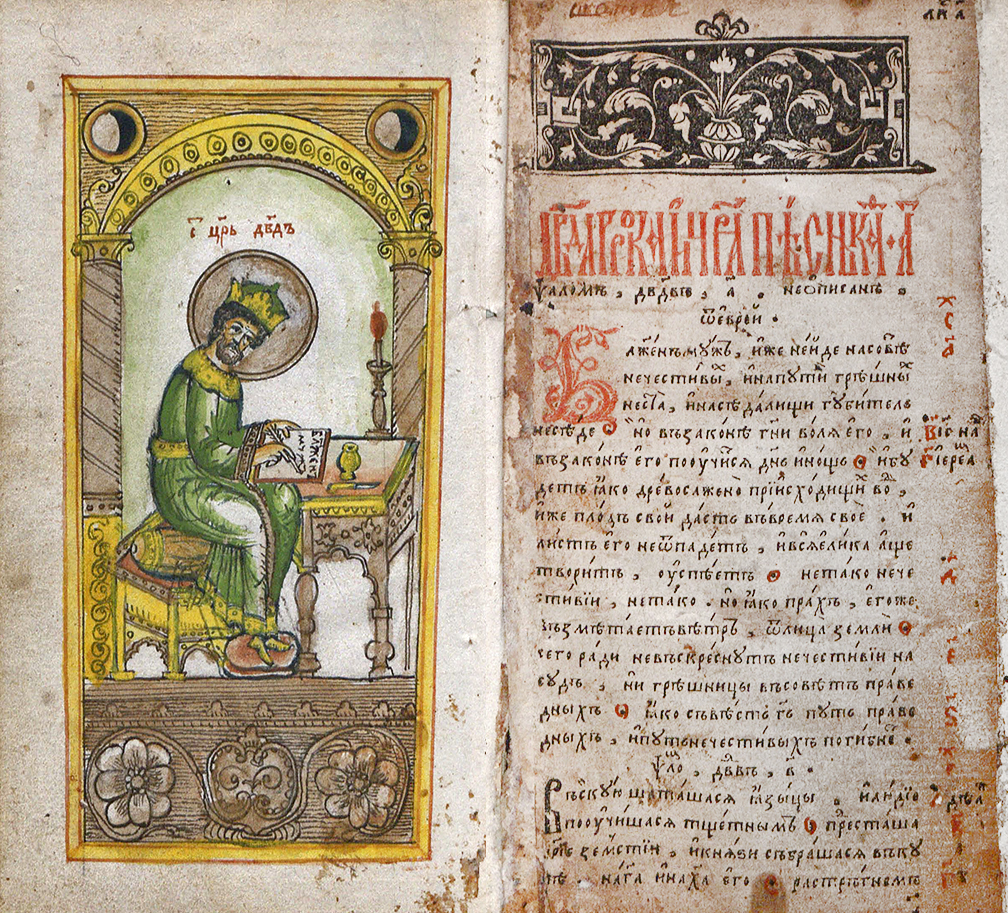 с҃ црь дв҃дъ
блажен
мужъ
дв҃да прⷪ҇рока и цр҃ѧ пѣсни каѳⷭ҇ а҃
ѱаломъ, дв҃двъ, а҃. неѡписанъ.
ѿ еврей.
Блажен мужъ, иже не иде на совѣтъ
нечестивыⷯ, и на пути грѣшныⷯ
не ста, и на сѣдалищи губитель
не сѣде но въ законѣ гн҃и волѧ его, и
въ законѣ его поѹчисѧ дн҃ь и нощь и бу
детъ ꙗко древо сажено при исходищиⷯ воⷣ,
иже плодъ свой дастъ въ времѧ свое. и
листъ его неѿпадетъ, и всѧ елика аще
творитъ, оуспѣетъ не тако нече
стивіи, не тако. но ꙗко прахъ, егоже
възмѣтаетъ вѣтръ, ѿ лица земли
сего ради невъскреснутъ нечестивіи на
судъ, ни грѣшницы въ совѣтъ праве
дныхъ ꙗко съвѣсть гь҃ путь праве
дныхъ, и путь нечестивыхъ погибне.
ѱло, дв҃двъ, в҃.
Въскую шаташасѧ ꙗзыцы. и людїе
поѹчишасѧ тщетнымъ престаша
царїе земстіи, и кнѧзи събрашасѧ въку
пѣ. на га҃ и на ха҃ его растръгнемъ